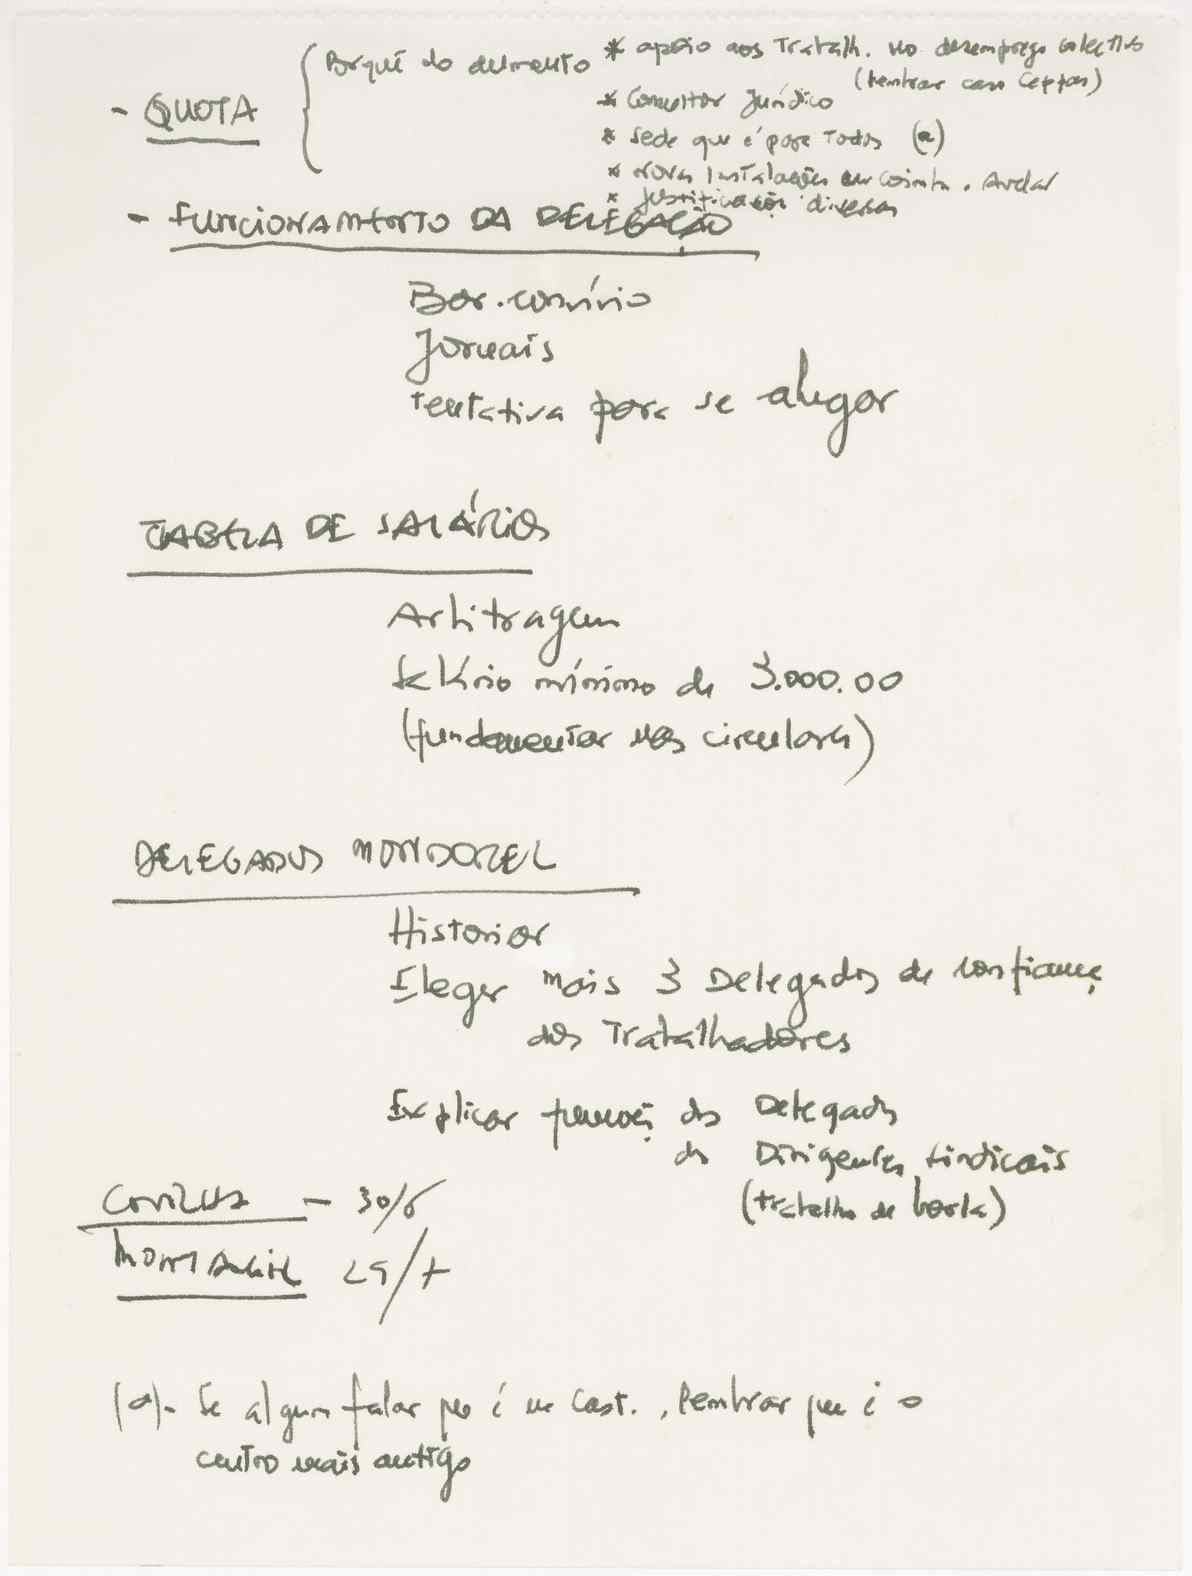 - QUOTA
Porquê do aumento
* apoio aos Trabalh. no desemprego colectivo
(lembrar caso Ceppas)
* Consultor Jurídico
* Sede que é para Todos (a)
* Novas Instalações em Coimbra. Avelar
* Justificações diversas
- FUNCIONAMENTO DA DELEGAÇÃO
Bar. convívio
Jornais
tentativa para se alugar
TABELA DE SALÁRIOS
Arbitragem
Salário mínimo de 3.000.00
(fundamentar nas circulares)
DELEGADOS MONDOREL
Historiar
Eleger mais 3 Delegados de confiança
dos Trabalhadores
Explicar funções dos Delegados
dos Dirigentes Sindicais
(trabalho de borla)
- 30/6
(a)- Se algum falar que é em Cast., lembrar que é o
centro mais antigo